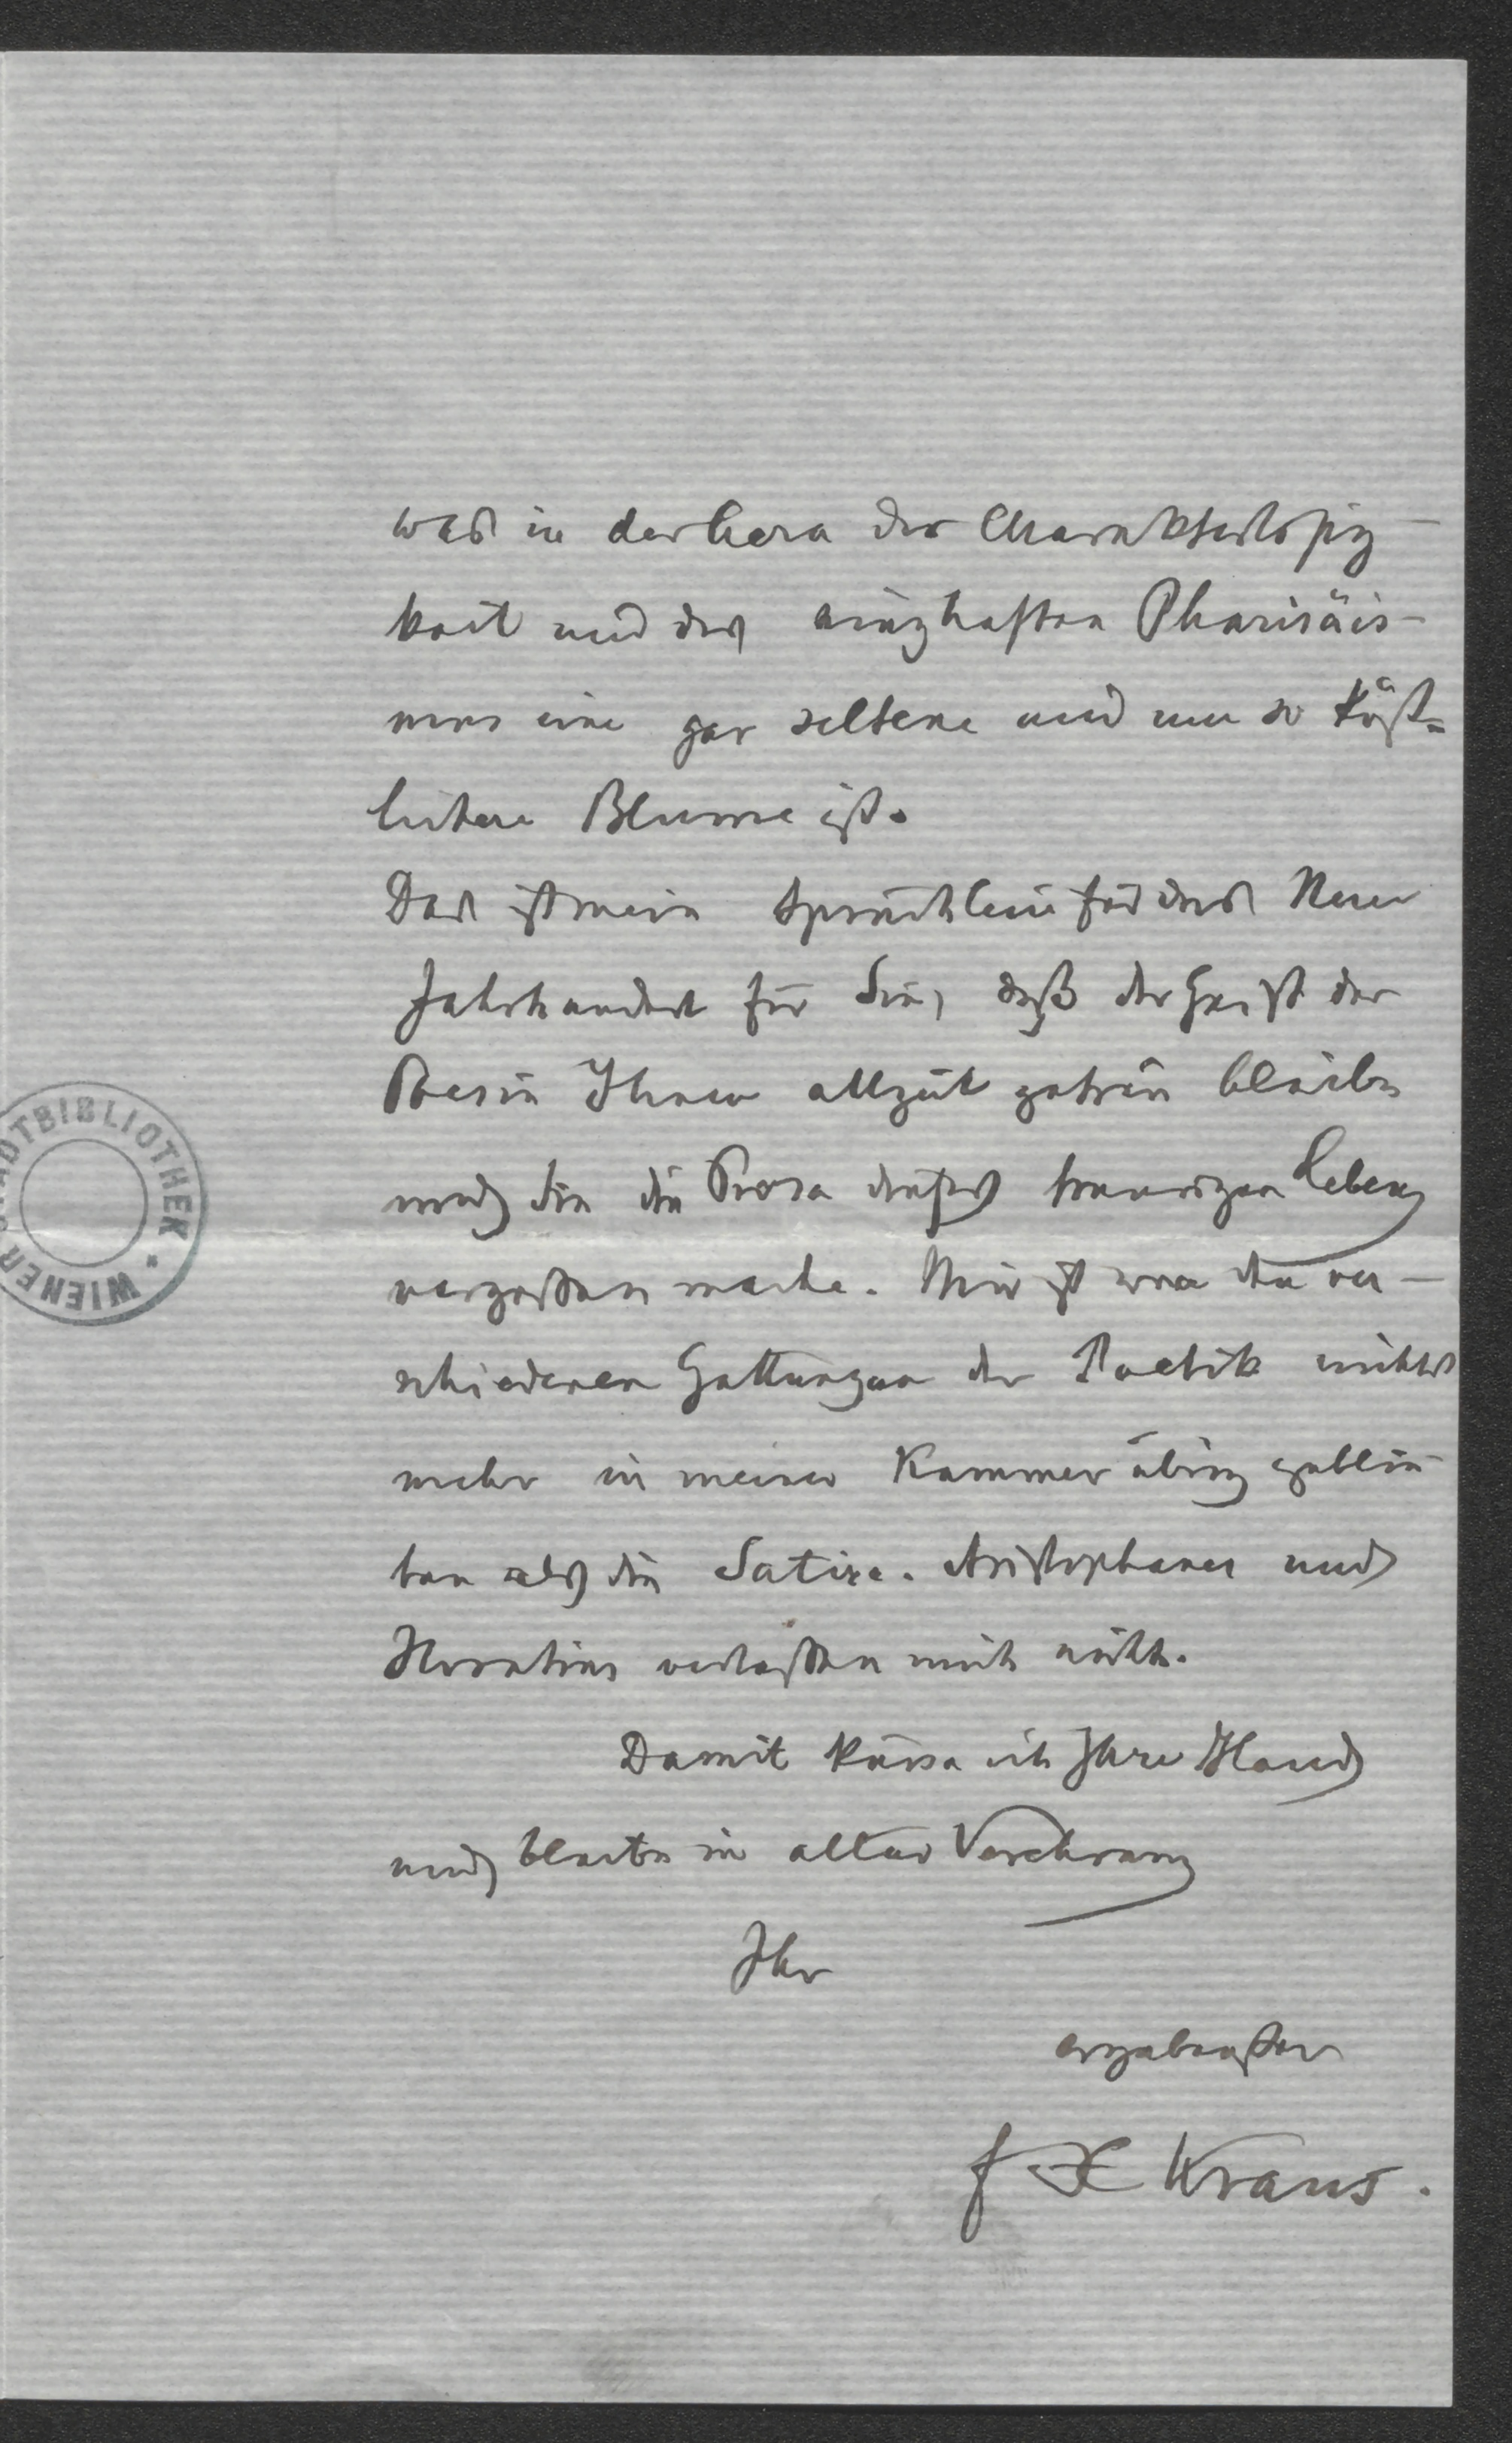 was in der Aera der Charakterlosig-
keit und des Pharisäis-
mus eine gar seltene und um so köst=
lichere Blume ist.
Das ist mein Sprüchlein für das Neue
Jahrhundert für Sie, daß der Geist der
Poesie Ihnen allzeit getreu bleibe
und Sie die Prosa dieses traurigen Lebens
vergessen mache. Mir ist von den ver-
schiedenen Gattungen der Poetik nichts
mehr in meiner Kammer übrig geblie-
ben als die Satire. Aristophanes und
Horatius verlassen mich nicht.
Damit küsse ich Ihre Hand
und bleibe in alter Verehrung
Ihr
ergebenster
F X Kraus.
STADTBIBLIOTHEK * WIENER